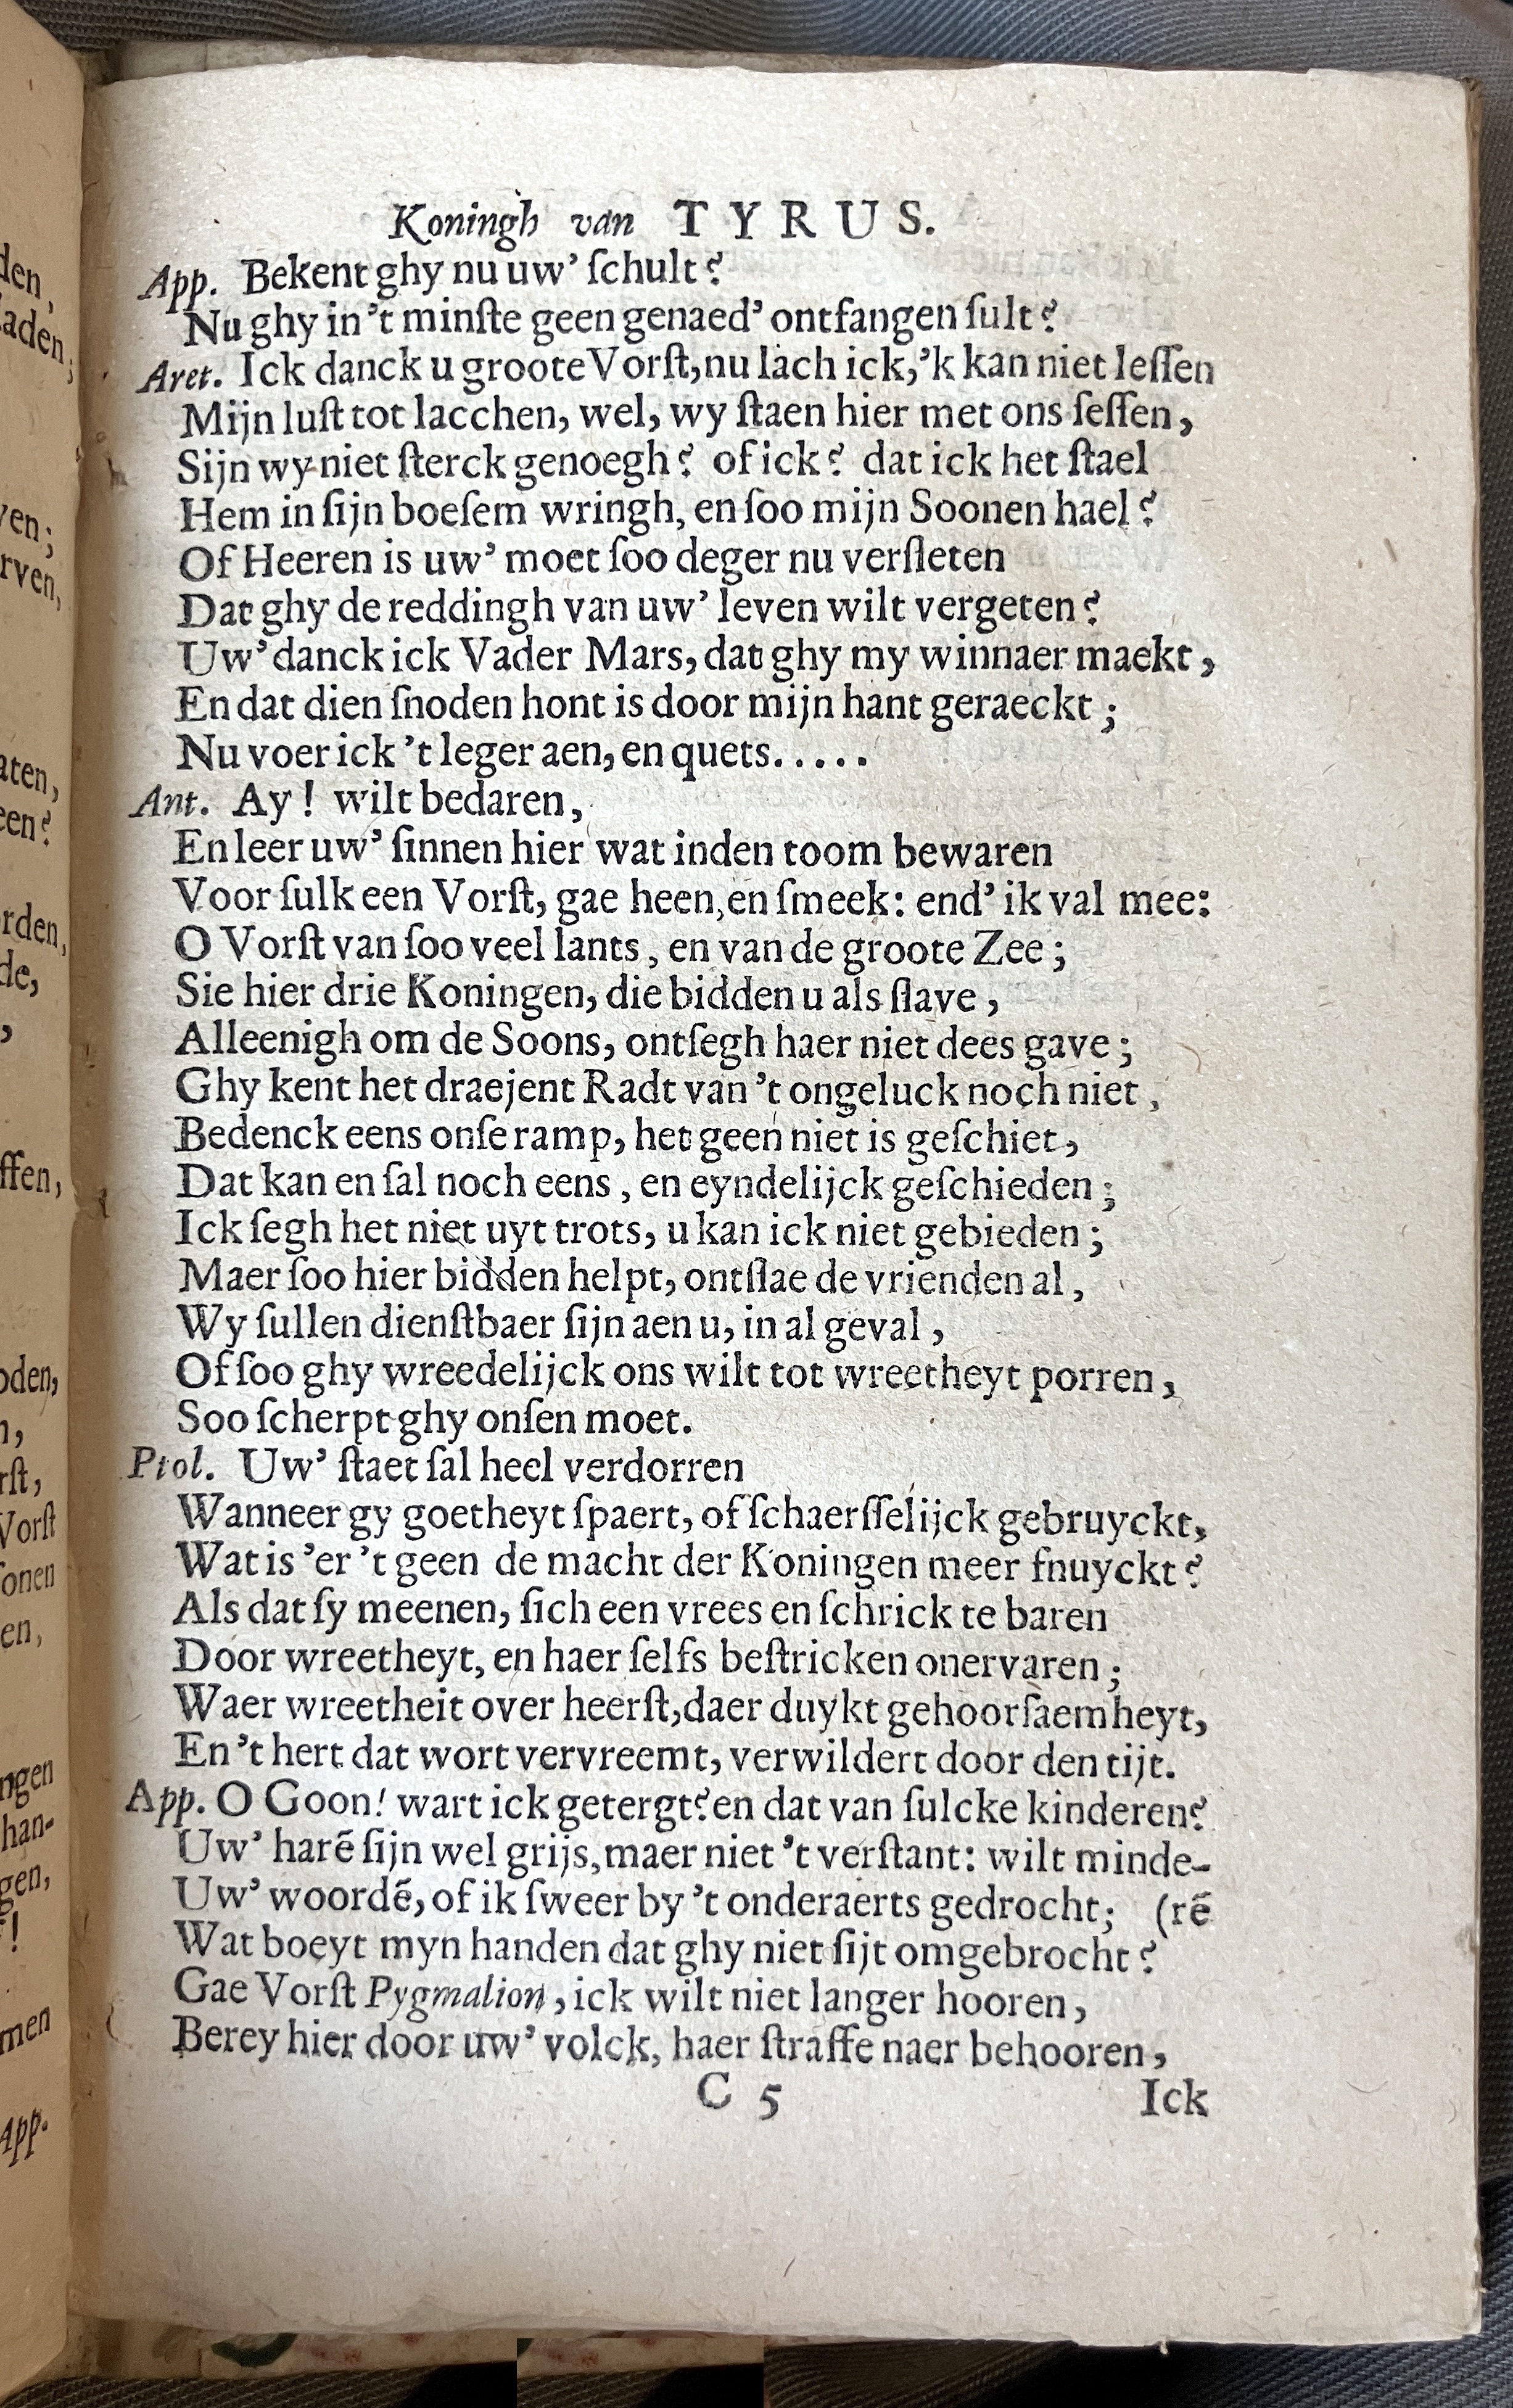 Koningh van TYRUS.
App. Bekent ghy nu uw’ ſchult?
Nu ghy in ’t minſte geen genaed’ ontfangen ſult?
Aret. Ick danck u groote Vorſt, nu lach ick, ’k kan niet leſſen
Mijn luſt tot lacchen, wel, wy ſtaen hier met ons ſeſſen,
Sijn wy niet ſterck genoegh? of ick? dat ick het ſtael
Hem in ſijn boeſem wringh, en ſoo mijn Soonen hael?
Of Heeren is uw’ moet ſoo deger nu verſleten
Dat ghy de reddingh van uw’ leven wilt vergeten?
Uw’ danck ick Vader Mars, dat ghy my winnaer maekt,
En dat dien ſnoden hont is door mijn hant geraeckt;
Nu voer ick ’t leger aen, en quets.....
Ant. Ay! wilt bedaren,
En leer uw’ ſinnen hier wat inden toom bewaren
Voor ſulk een Vorſt, gae heen, en ſmeek: end’ ik val mee:
O Vorſt van ſoo veel lants, en van de groote Zee;
Sie hier drie Koningen, die bidden u als ſlave,
Alleenigh om de Soons, ontſegh haer niet dees gave;
Ghy kent het draejent Radt van ’t ongeluck noch niet,
Bedenck eens onſe ramp, het geen niet is geſchiet,
Dat kan en ſal noch eens, en eyndelijck geſchieden;
Ick ſegh het niet uyt trots, u kan ick niet gebieden;
Maer ſoo hier bidden helpt, ontſlae de vrienden al,
Wy ſullen dienſtbaer ſijn aen u, in al geval,
Of ſoo ghy wreedelijck ons wilt tot wreetheyt porren,
Soo ſcherpt ghy onſen moet.
Ptol. Uw’ ſtaet ſal heel verdorren
Wanneer gy goetheyt ſpaert, of ſchaerſſelijck gebruyckt,
Wat is ’er ’t geen de macht der Koningen meer fnuyckt?
Als dat ſy meenen, ſich een vrees en ſchrick te baren
Door wreetheyt, en haer ſelfs beſtricken onervaren;
Waer wreetheit over heerſt, daer duykt gehoorſaemheyt,
En ’t hert dat wort vervreemt, verwildert door den tijt.
App. O Goon! wart ick getergt? en dat van ſulcke kinderen?
Uw’ harē ſijn wel grijs, maer niet ’t verſtant: wilt minde-
Uw’ woordē, of ik ſweer by ’t onderaerts gedrocht; (rē
Wat boeyt myn handen dat ghy niet ſijt omgebrocht?
Gae Vorſt Pygmalion, ick wilt niet langer hooren,
Berey hier door uw’ volck, haer ſtraffe naer behooren,
C 5 Ick